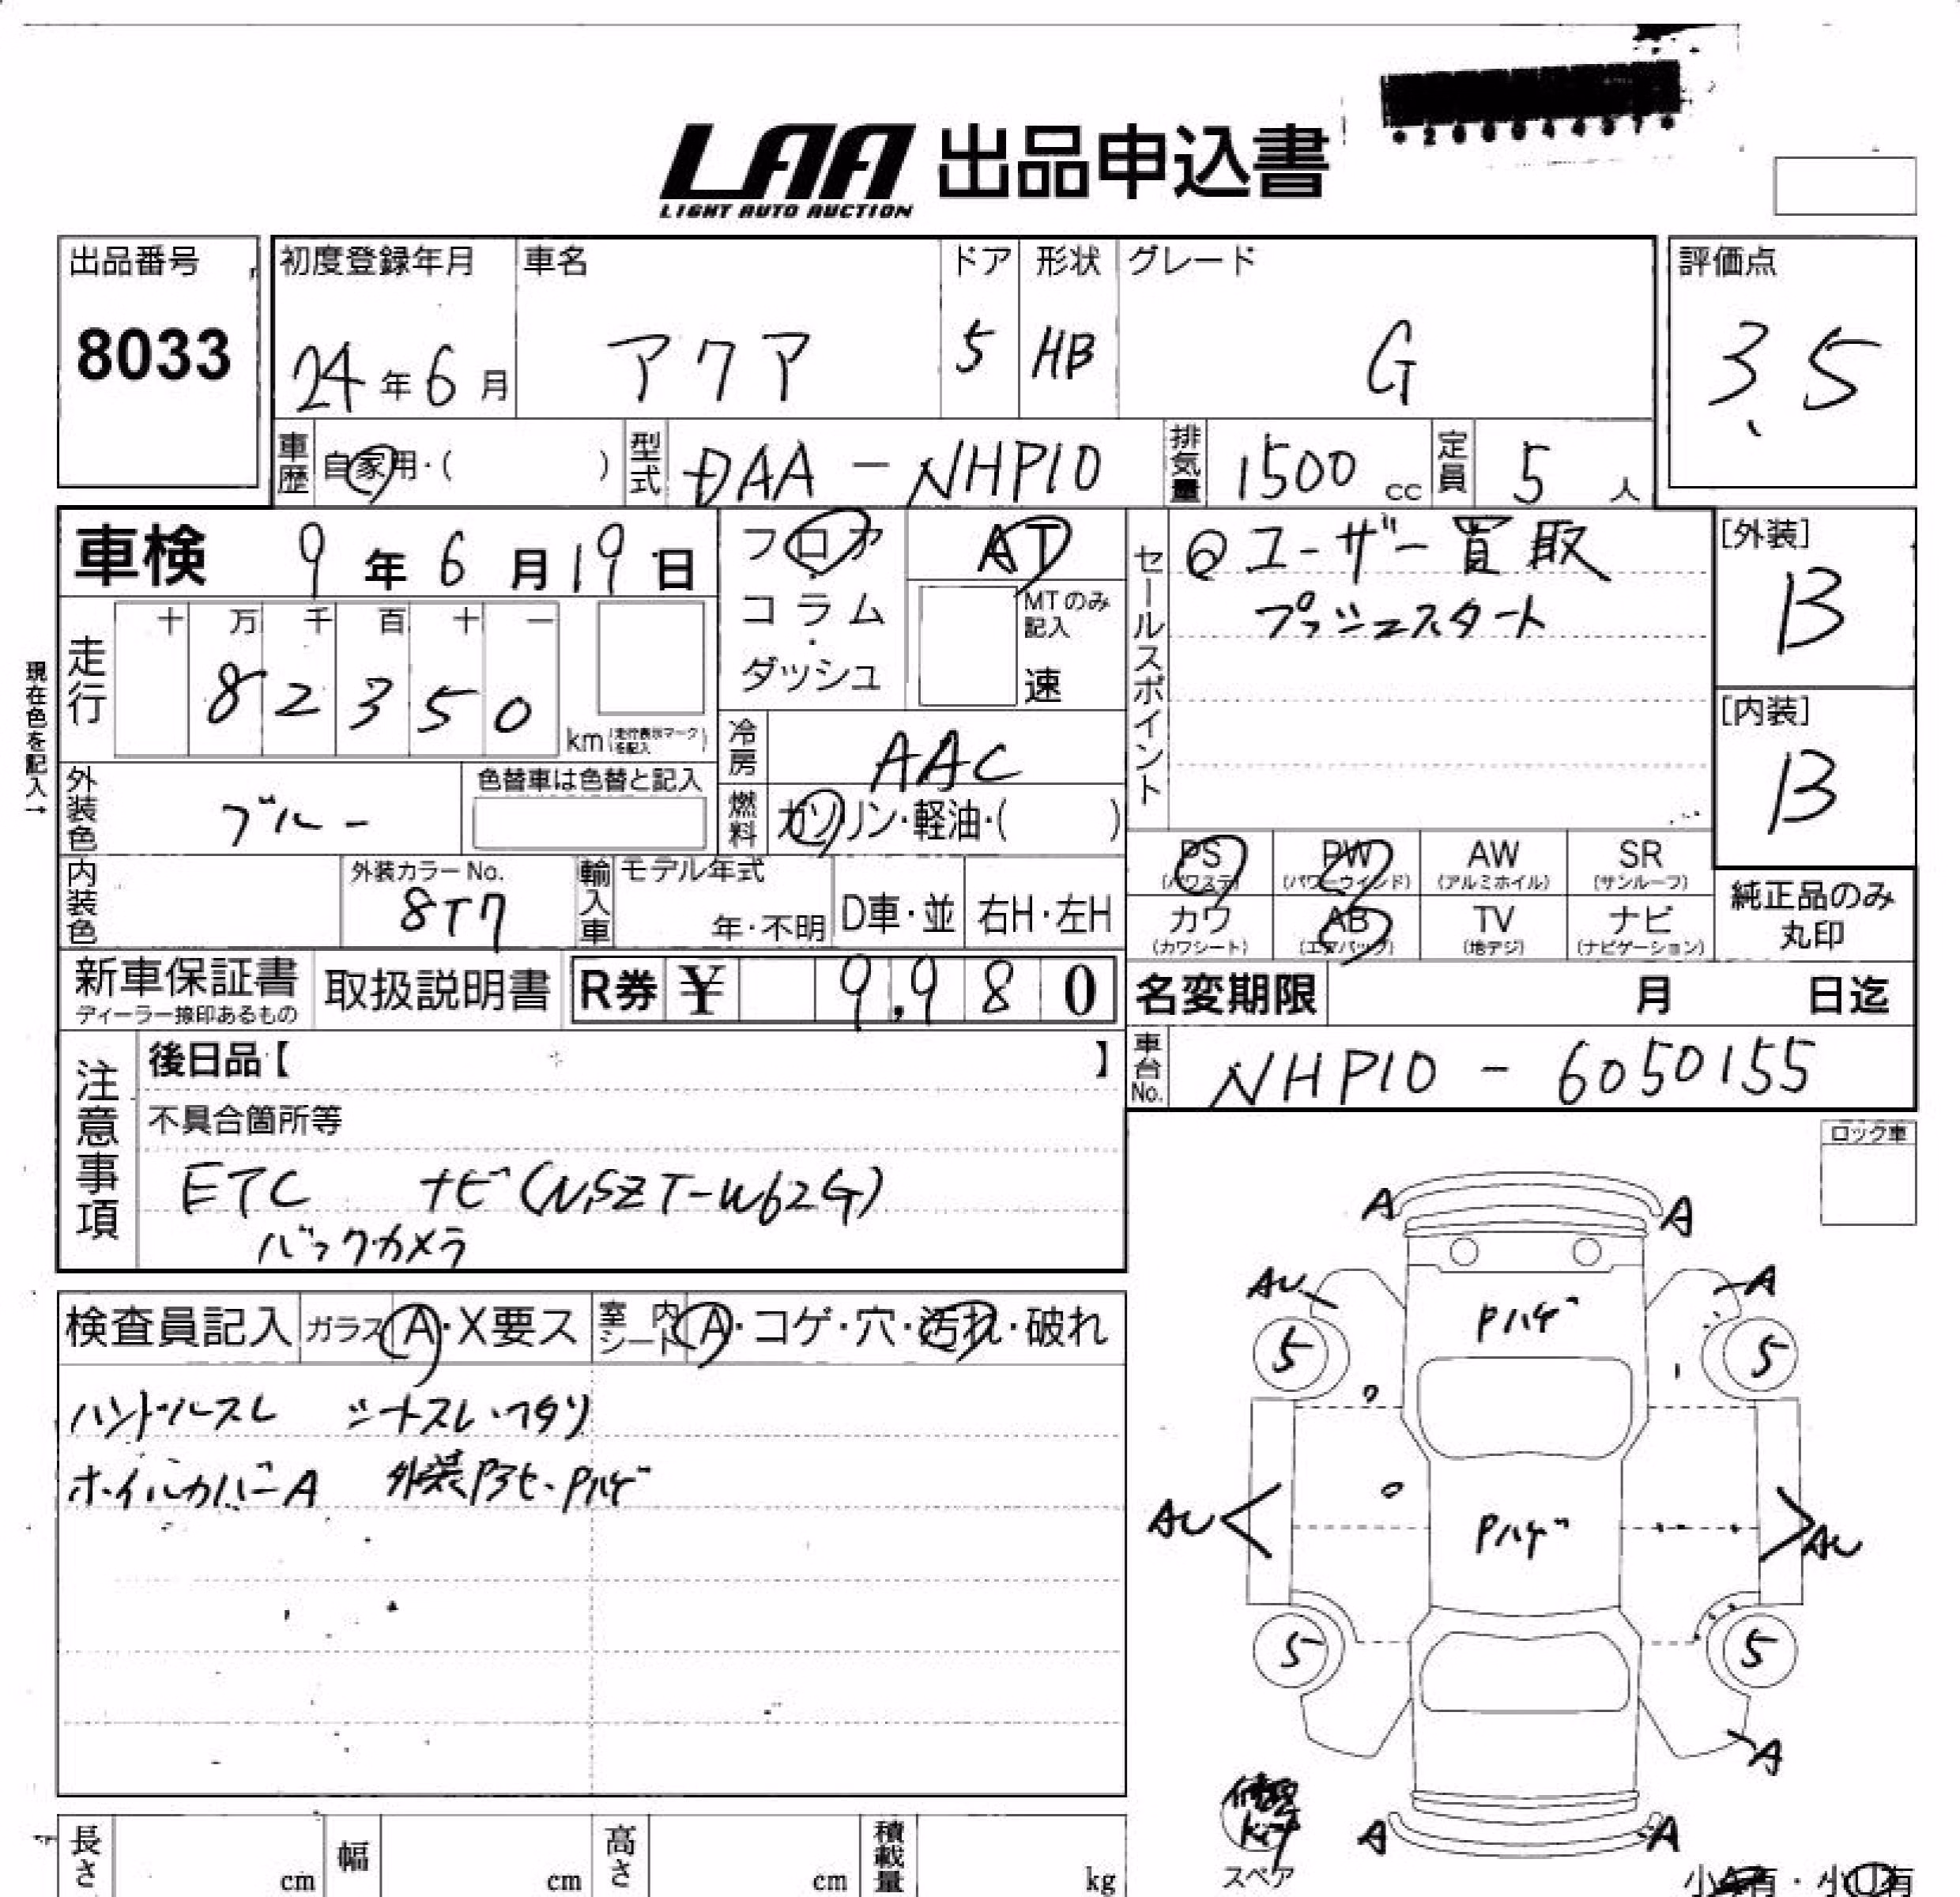 LAA 出品申込書
LIGHT AUTO AUCTION
出品番号
8033
初度登録年月
24年6月
車名
アクア
ドア
5
形状
HB
グレード
G
評価点
3.5
車歴
自家用・( )
型式
DAA-NHP10
排気量
1500 cc
定員
5 人
現在色を記入→
車検 9年6月19日
走行
十 万 千 百 十 一
8 2 3 5 0
km (走行表示マークを記入)
フロア・コラム・ダッシュ
AT
MTのみ記入
速
冷房
AAC
燃料
ガソリン・軽油・( )
外装色
ブルー
色替車は色替と記入
内装色
外装カラーNo.
8T7
輸入車
モデル年式
年・不明
D車・並
右H・左H
セールスポイント
ユーザー買取
プッシュスタート
[外装]
B
[内装]
B
PS (パワステ)
PW (パワーウインド)
AW (アルミホイル)
SR (サンルーフ)
カワ (カワシート)
AB (エアバッグ)
TV (地デジ)
ナビ (ナビゲーション)
純正品のみ丸印
新車保証書
ディーラー捺印あるもの
取扱説明書
R券 ¥ 9,980
名変期限 月 日迄
車台No.
NHP10-6050155
注意事項
後日品【 】
不具合箇所等
ETC ナビ(NSZT-W62G)
バックカメラ
ロック車
検査員記入
ガラス A・X要ス
室内シート A・コゲ・穴・汚れ・破れ
ハンドルスレ シートスレ・ヘタリ
ホイルカバーA 外装アセ・Pハゲ
A A
AU A
Pハゲ
5 5
AU Pハゲ AU
5 5
A
スペア
A A
長さ cm
幅 cm
高さ cm
積載量 kg